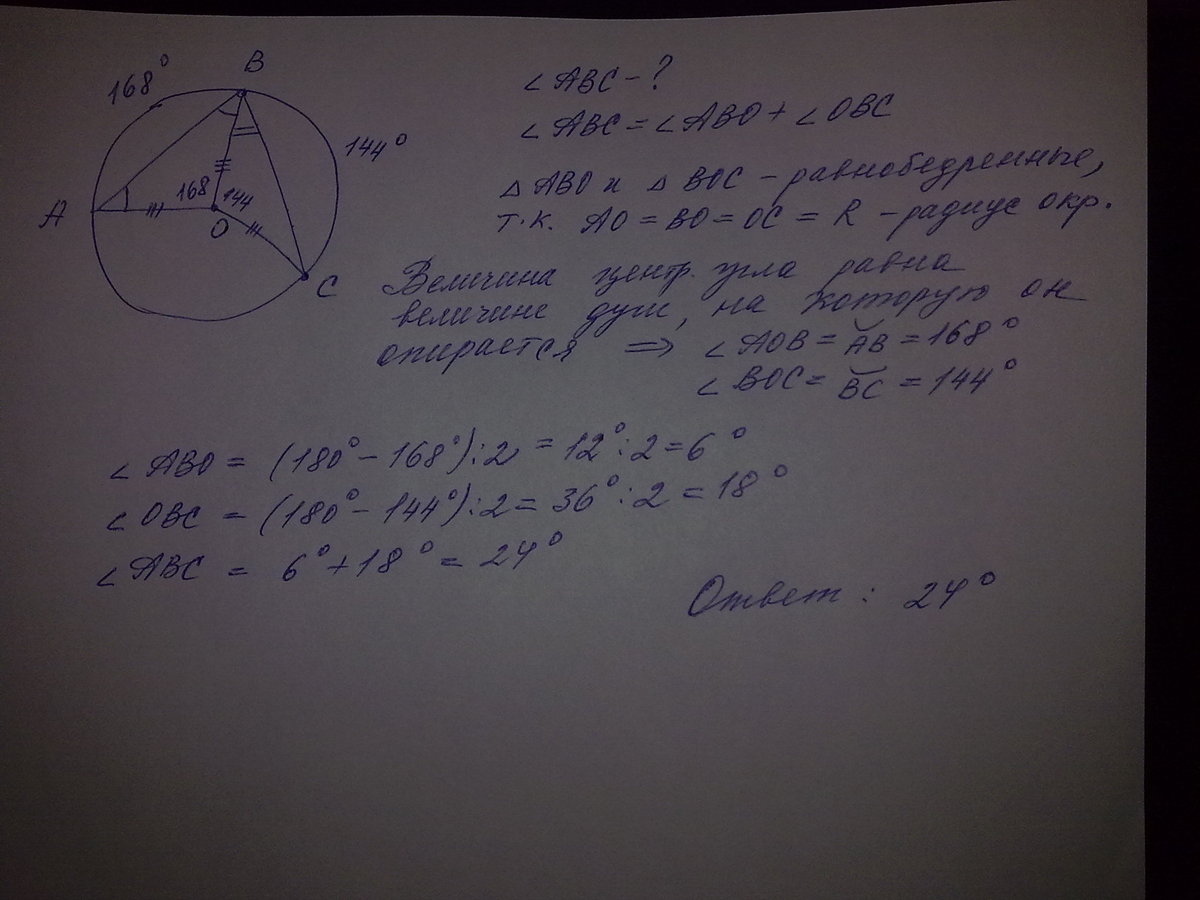 168°
B
144°
A
168
144
O
C
∠ABC - ?
∠ABC = ∠ABO + ∠OBC
△ABO и △BOC - равнобедренные,
т.к. AO = BO = OC = R - радиус окр.
Величина центр. угла равна
величине дуги, на которую он
опирается ⇒ ∠AOB = ◡AB = 168°
∠BOC = ◡BC = 144°
∠ABO = (180° - 168°) : 2 = 12° : 2 = 6°
∠OBC = (180° - 144°) : 2 = 36° : 2 = 18°
∠ABC = 6° + 18° = 24°
Ответ: 24°